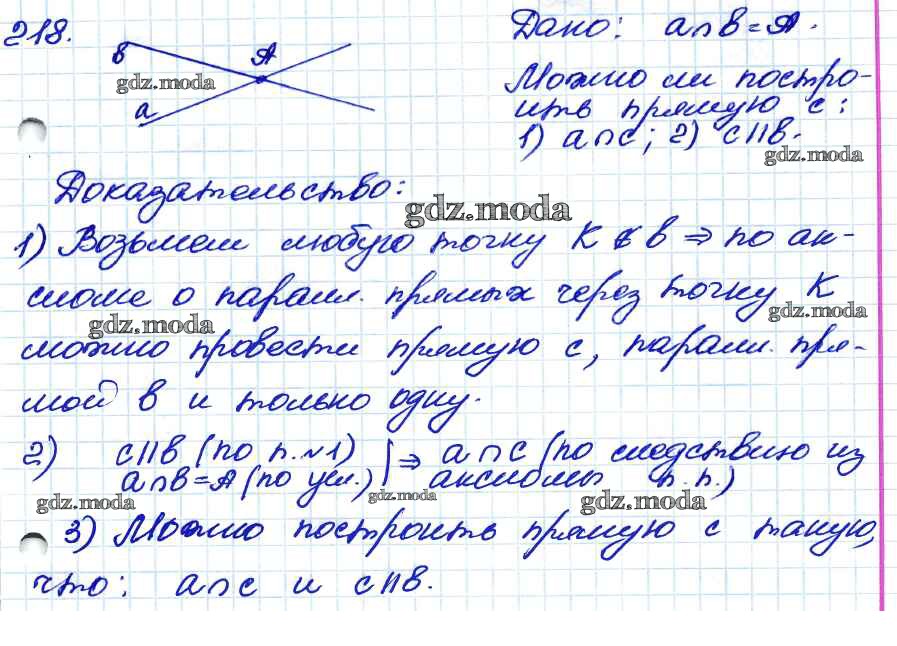 218.
Дано: a∩в=A.
в
A
gdz.moda
a
Можно ли постро-
ить прямую с:
1) a∩c; 2) c||в.
gdz.moda
Доказательство:
gdz.moda
1) Возьмем любую точку K ∉ в ⇒ по ак-
сиоме о паралл. прямых через точку K
gdz.moda
gdz.moda
можно провести прямую с, паралл. пря-
мой в и только одну.
2) c||в (по п.№1) ⇒ a∩c (по следствию из
a∩в=A (по усл.) аксиомы п.п.)
gdz.moda
gdz.moda
gdz.moda
3) Можно построить прямую с такую,
что: a∩c и c||в.